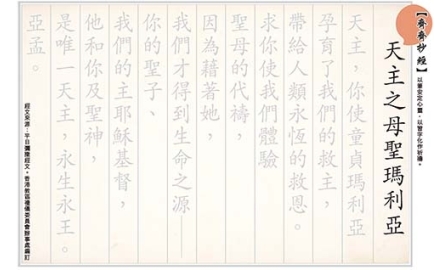 【齊齊抄經】
以筆安定心靈，以習字化作祈禱。
天主之母聖瑪利亞
天主，你使童貞瑪利亞
孕育了我們的救主，
帶給人類永恆的救恩。
求你使我們體驗
聖母的代禱，
因為藉著她，
我們才得到生命之源——
你的聖子、
我們的主耶穌基督，
他和你及聖神，
是唯一天主，永生永王。
亞孟。
經文來源：平日彌撒經文，香港教區禮儀委員會辦事處編訂